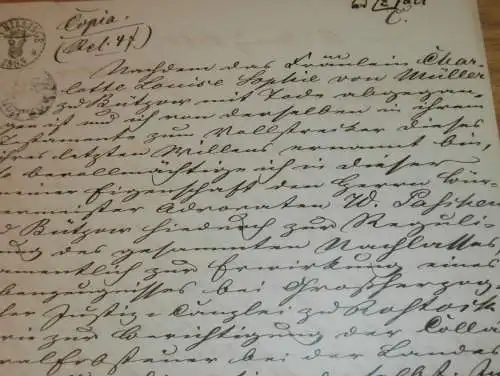 Copia.
(Act. 47)
Nachdem das Fräulein Char-
lotte Louise Sophie von Müller
zu Bützow mit Tode abgegan-
gen ist und ich von derselben in ihrem
Testamente zur Vollstrecker dieses
ihres letzten Willens ernannt bin,
so bevollmächtige ich in dieser
meiner Eigenschaft den Herrn Bür-
germeister Advocaten
Bützow hiedurch zur Reguli-
ung des gesammten Nachlasses,
namentlich zur Erwirkung eines
benzeugnisses bei Großherzog-
ler Justiz-Canzlei zu Rostock
wie zur Berichtigung der Colla
ralErbsteuer bei der Landes